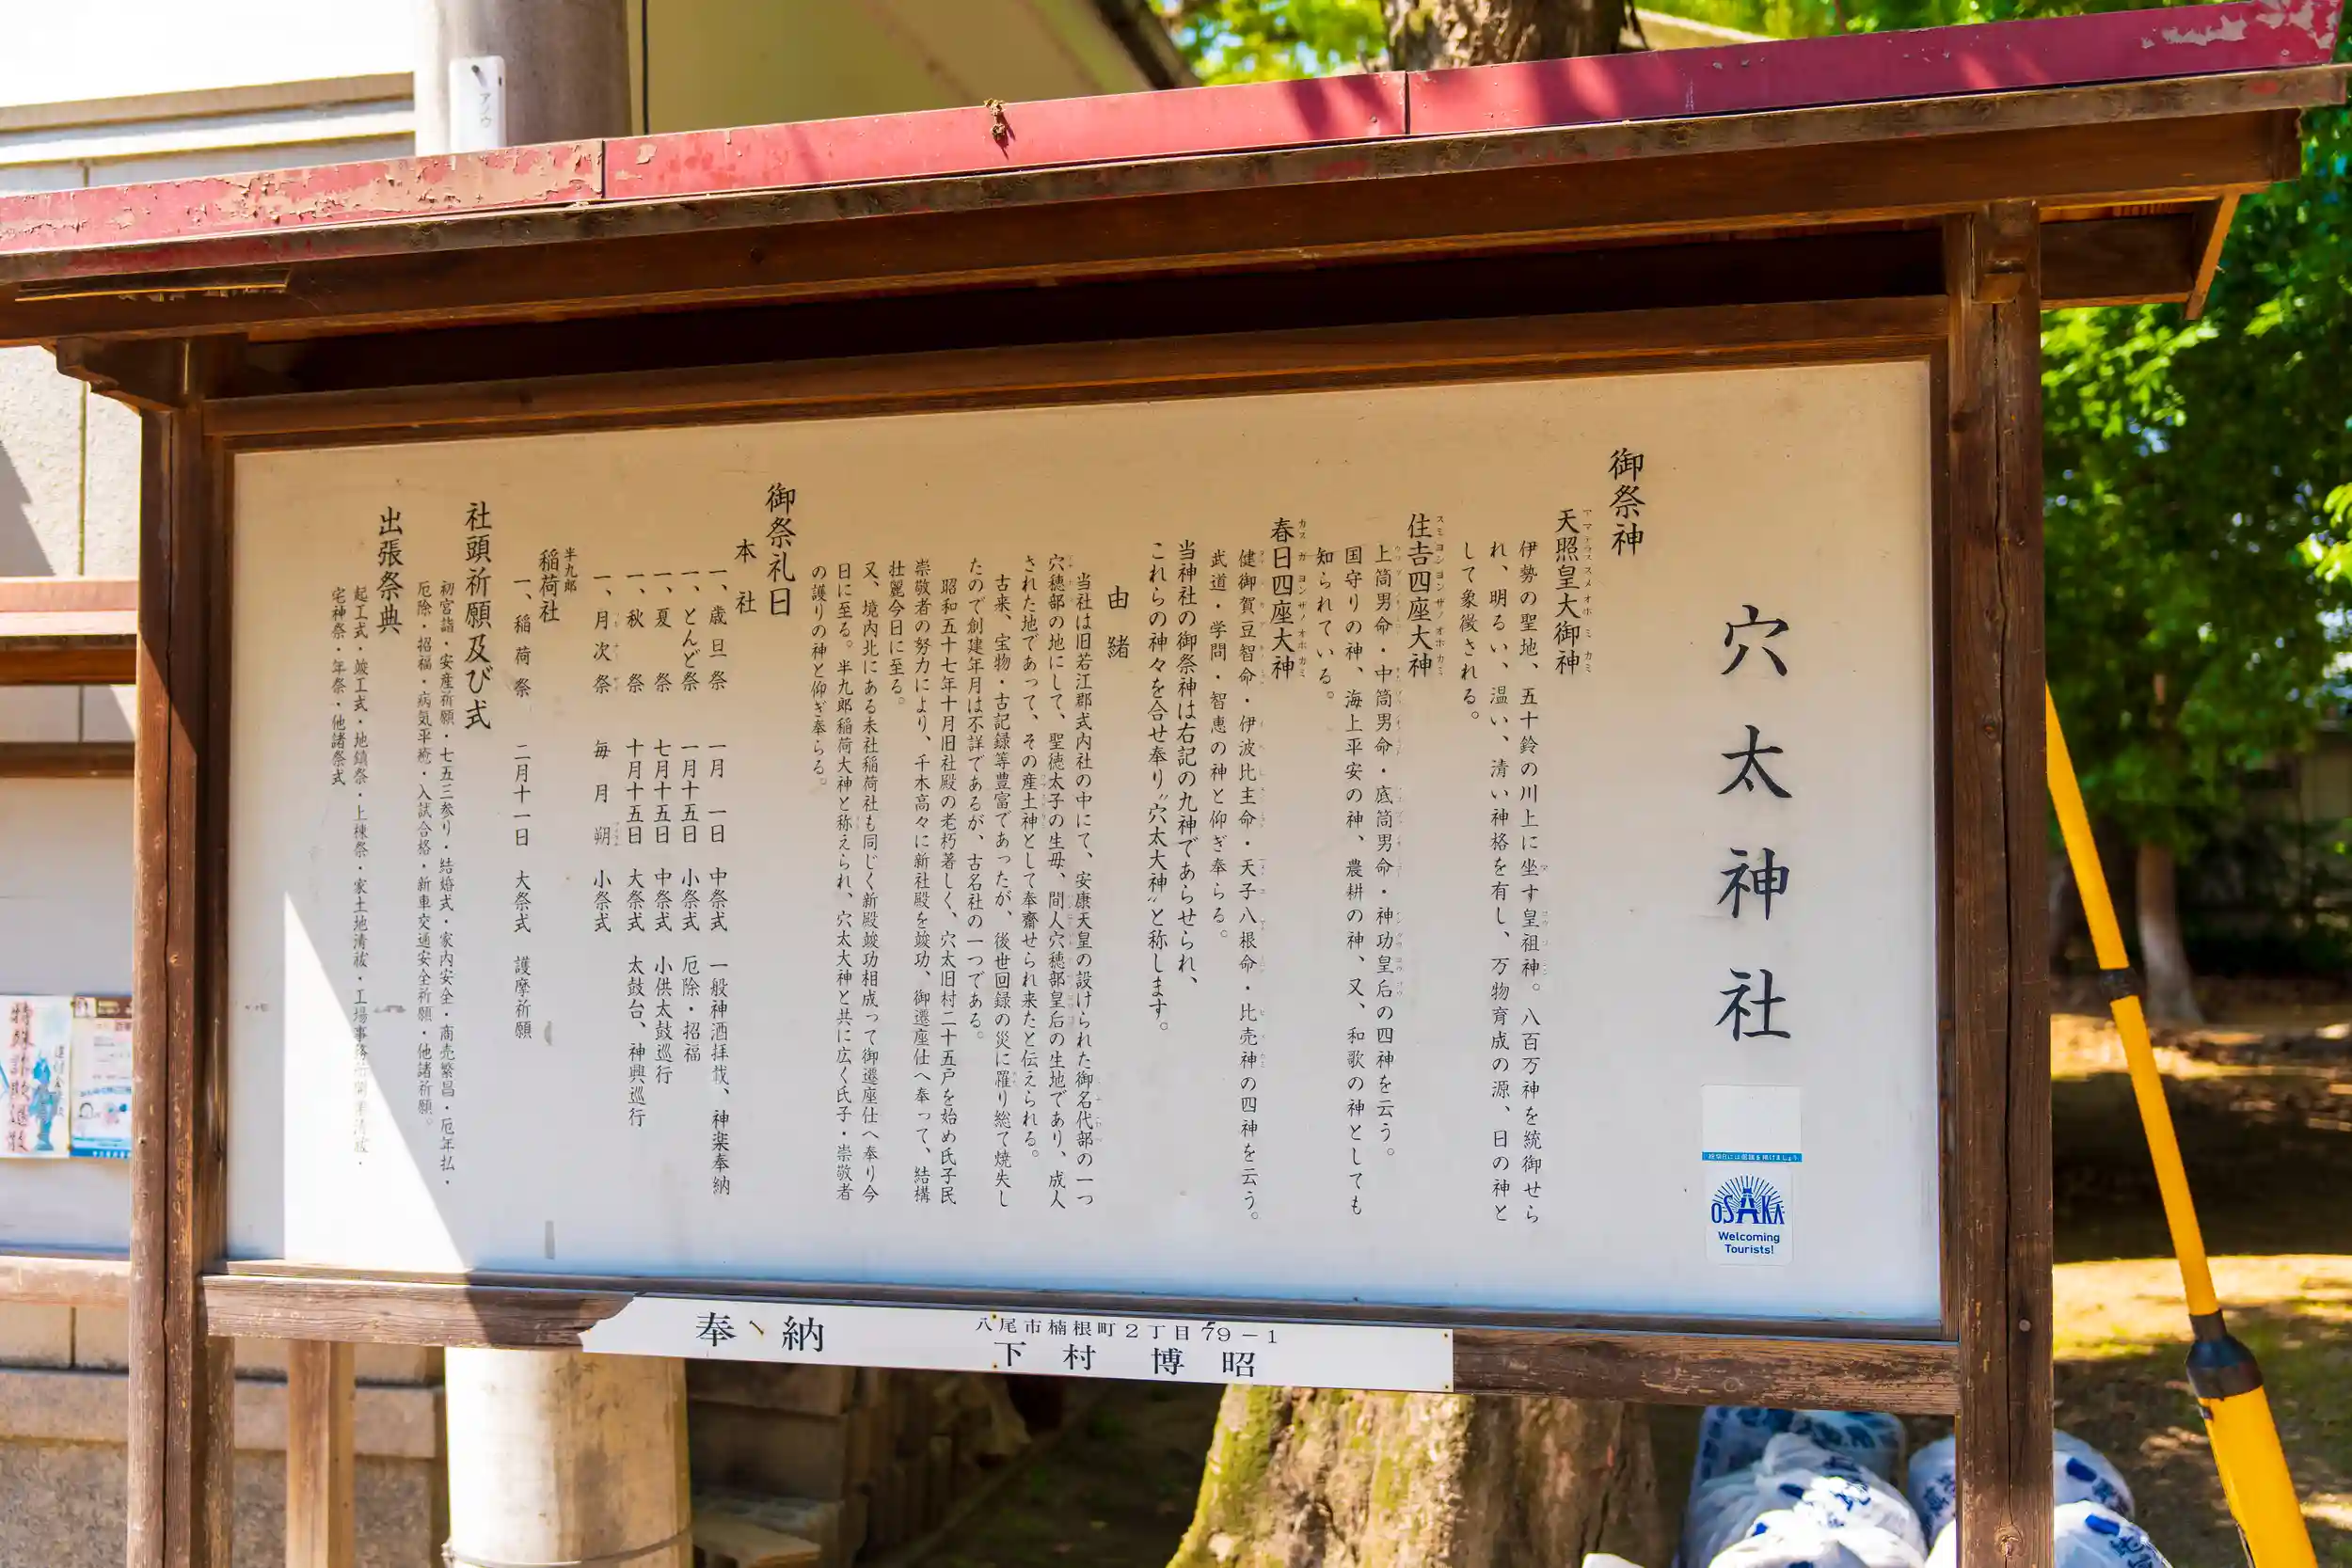 穴太神社
御祭神
天照皇大御神
アマテラススメオホミカミ
伊勢の聖地、五十鈴の川上に坐す皇祖神。八百万神を統御せら
れ、明るい、温い、清い神格を有し、万物育成の源、日の神と
して象徴される。
住吉四座大神
スミヨシヨンザノオホカミ
上筒男命・中筒男命・底筒男命・神功皇后の四神を云う。
国守りの神、海上平安の神、農耕の神、又、和歌の神としても
知られている。
春日四座大神
カスガヨンザノオホカミ
健御賀豆智命・伊波比主命・天子八根命・比売神の四神を云う。
武道・学問・智恵の神と仰ぎ奉らる。
当神社の御祭神は右記の九神であらせられ、
これらの神々を合せ奉り〝穴太大神〟と称します。
由緒
当社は旧若江郡式内社の中にて、安康天皇の設けられた御名代部の一つ
穴穂部の地にして、聖徳太子の生母、間人穴穂部皇后の生地であり、成人
された地であって、その産土神として奉齋せられ来たと伝えられる。
古来、宝物・古記録等豊富であったが、後世回録の災に罹り総て焼失し
たので創建年月は不詳であるが、古名社の一つである。
昭和五十七年十月旧社殿の老朽著しく、穴太旧村二十五戸を始め氏子民
崇敬者の努力により、千木高々に新社殿を竣功、御遷座仕へ奉って、結構
壮麗今日に至る。
又、境内北にある末社稲荷社も同じく新殿竣功相成って御遷座仕へ奉り今
日に至る。半九郎稲荷大神と称えられ、穴太大神と共に広く氏子・崇敬者
の護りの神と仰ぎ奉らる。
御祭礼日
本社
一、歳旦祭 一月一日 中祭式 一般神酒拝戴、神楽奉納
一、とんど祭 一月十五日 小祭式 厄除・招福
一、夏祭 七月十五日 中祭式 小供太鼓巡行
一、秋祭 十月十五日 大祭式 太鼓台、神輿巡行
一、月次祭 毎月朔 小祭式
半九郎
稲荷社
一、稲荷祭 二月十一日 大祭式 護摩祈願
社頭祈願及び式
初宮詣・安産祈願・七五三参り・結婚式・家内安全・商売繁昌・厄年払・
厄除・招福・病気平癒・入試合格・新車交通安全祈願・他諸祈願。
出張祭典
起工式・竣工式・地鎮祭・上棟祭・家土地清祓・工場事務所開業清祓・
宅神祭・年祭・他諸祭式
祝祭日には国旗を掲げましょう
OSAKA
Welcoming
Tourists!
奉納
八尾市楠根町2丁目79-1
下村博昭
アメウ